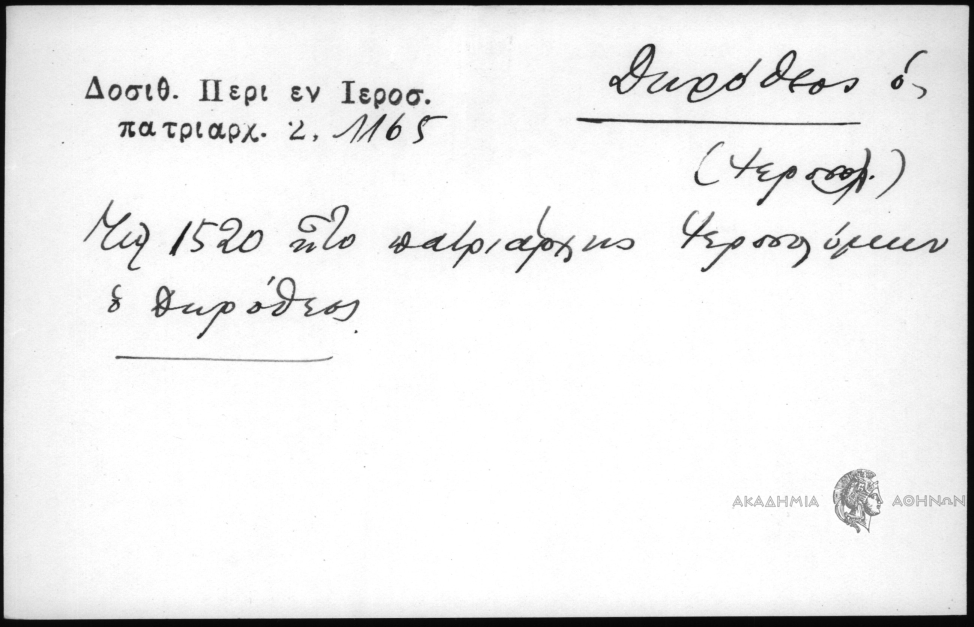 Δοσιθ. Περι εν Ιεροσ.
πατριαρχ. 2, 1165
Δωρόθεος ὁ
(Ἱεροσολ.)
1520 ἦτο πατριάρχης Ἱεροσολύμων
ὁ Δωρόθεος.
ΑΚΑΔΗΜΙΑ ΑΘΗΝΩΝ